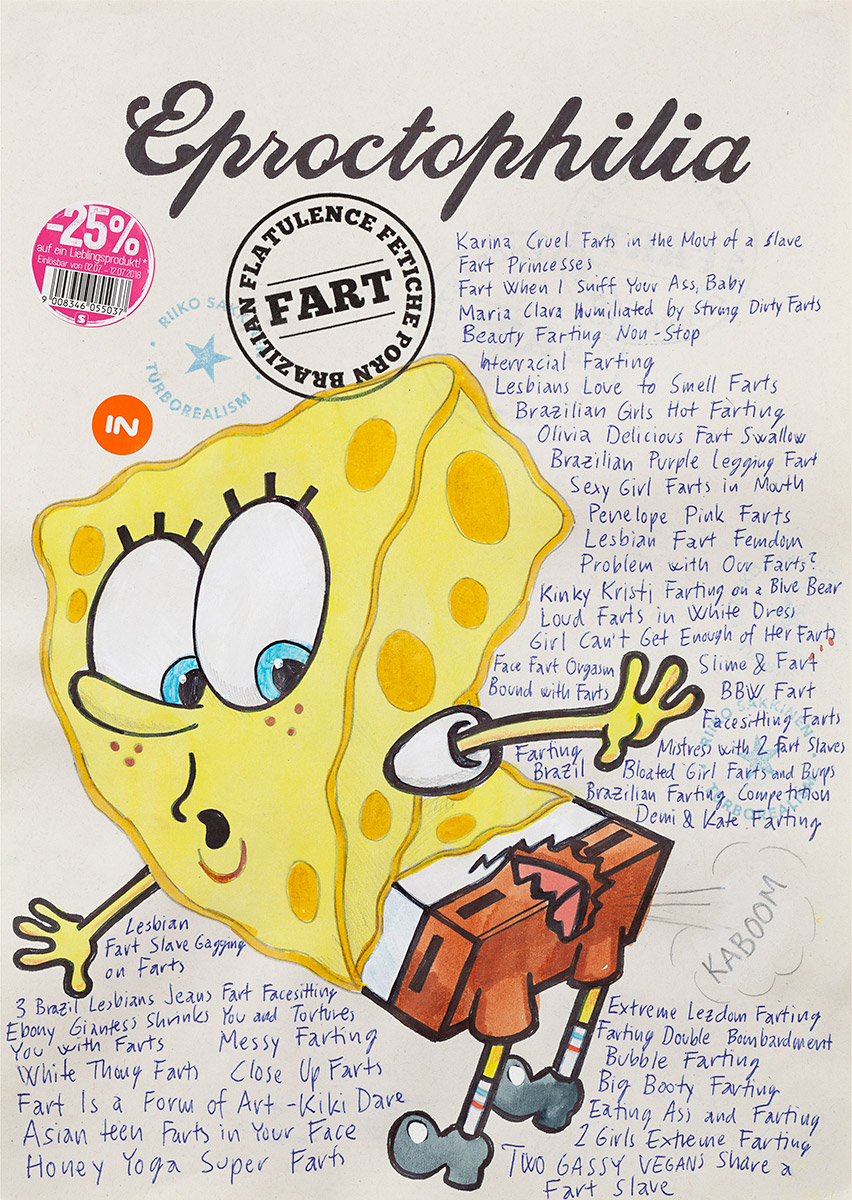 Eproctophilia
-25%
auf ein Lieblingsprodukt!*
Einlösbar von 02.07. - 12.07.2018
9 008346 055037
S
BRAZILIAN FLATULENCE FETICHE PORN
FART
RIIKO SAKKINEN
TURBOREALISM
IN
Karina Cruel Farts in the Mout of a Slave
Fart Princesses
Fart When I Sniff Your Ass, Baby
Maria Clara Humiliated by Strong Dirty Farts
Beauty Farting Non-Stop
Interracial Farting
Lesbians Love to Smell Farts
Brazilian Girls Hot Farting
Olivia Delicious Fart Swallow
Brazilian Purple Legging Fart
Sexy Girl Farts in Mouth
Penelope Pink Farts
Lesbian Fart Femdom
Problem with Our Farts?
Kinky Kristi Farting on a Blue Bear
Loud Farts in White Dress
Girl Can't Get Enough of Her Farts
Face Fart Orgasm
Slime & Fart
Bound with Farts
BBW Fart
Facesitting Farts
Farting
Brazil
Mistress with 2 Fart Slaves
Bloated Girl Farts and Burps
Brazilian Farting Competition
Demi & Kate Farting
RIIKO SAKKINEN
TURBOREALISM
KABOOM
Lesbian
Fart Slave Gagging
on Farts
3 Brazil Lesbians Jeans Fart Facesitting
Ebony Giantess Shrinks You and Tortures
You with Farts
Messy Farting
White Thong Farts
Close Up Farts
Fart Is a Form of Art - Kiki Dare
Asian teen Farts in Your Face
Honey Yoga Super Farts
Extreme Lezdom Farting
Farting Double Bombardment
Bubble Farting
Big Booty Farting
Eating Ass and Farting
2 Girls Extreme Farting
TWO GASSY VEGANS Share a
Fart Slave